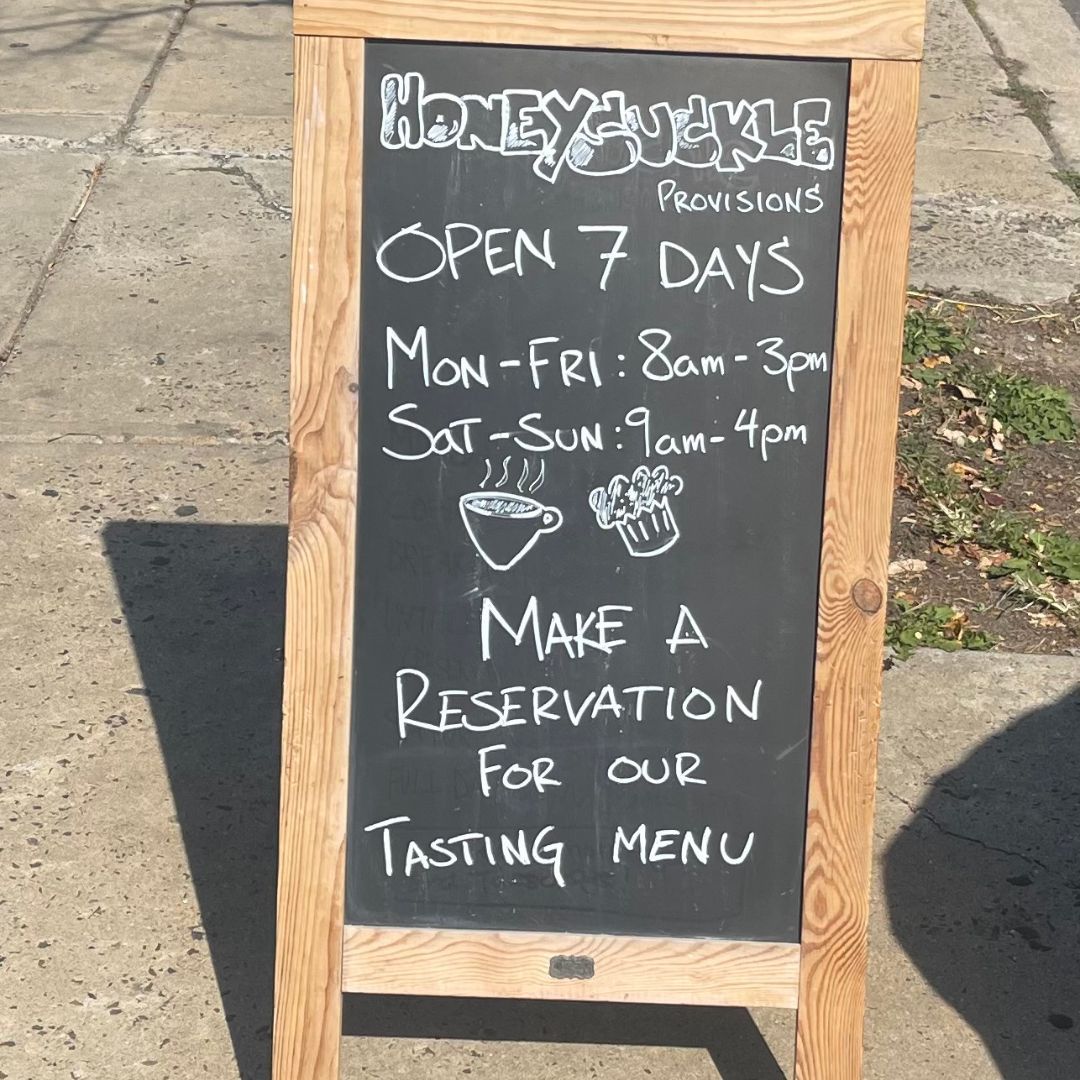 HONEYSUCKLE
PROVISIONS
OPEN 7 DAYS
MON-FRI: 8am-3pm
SAT-SUN: 9am-4pm
MAKE A
RESERVATION
FOR OUR
TASTING MENU